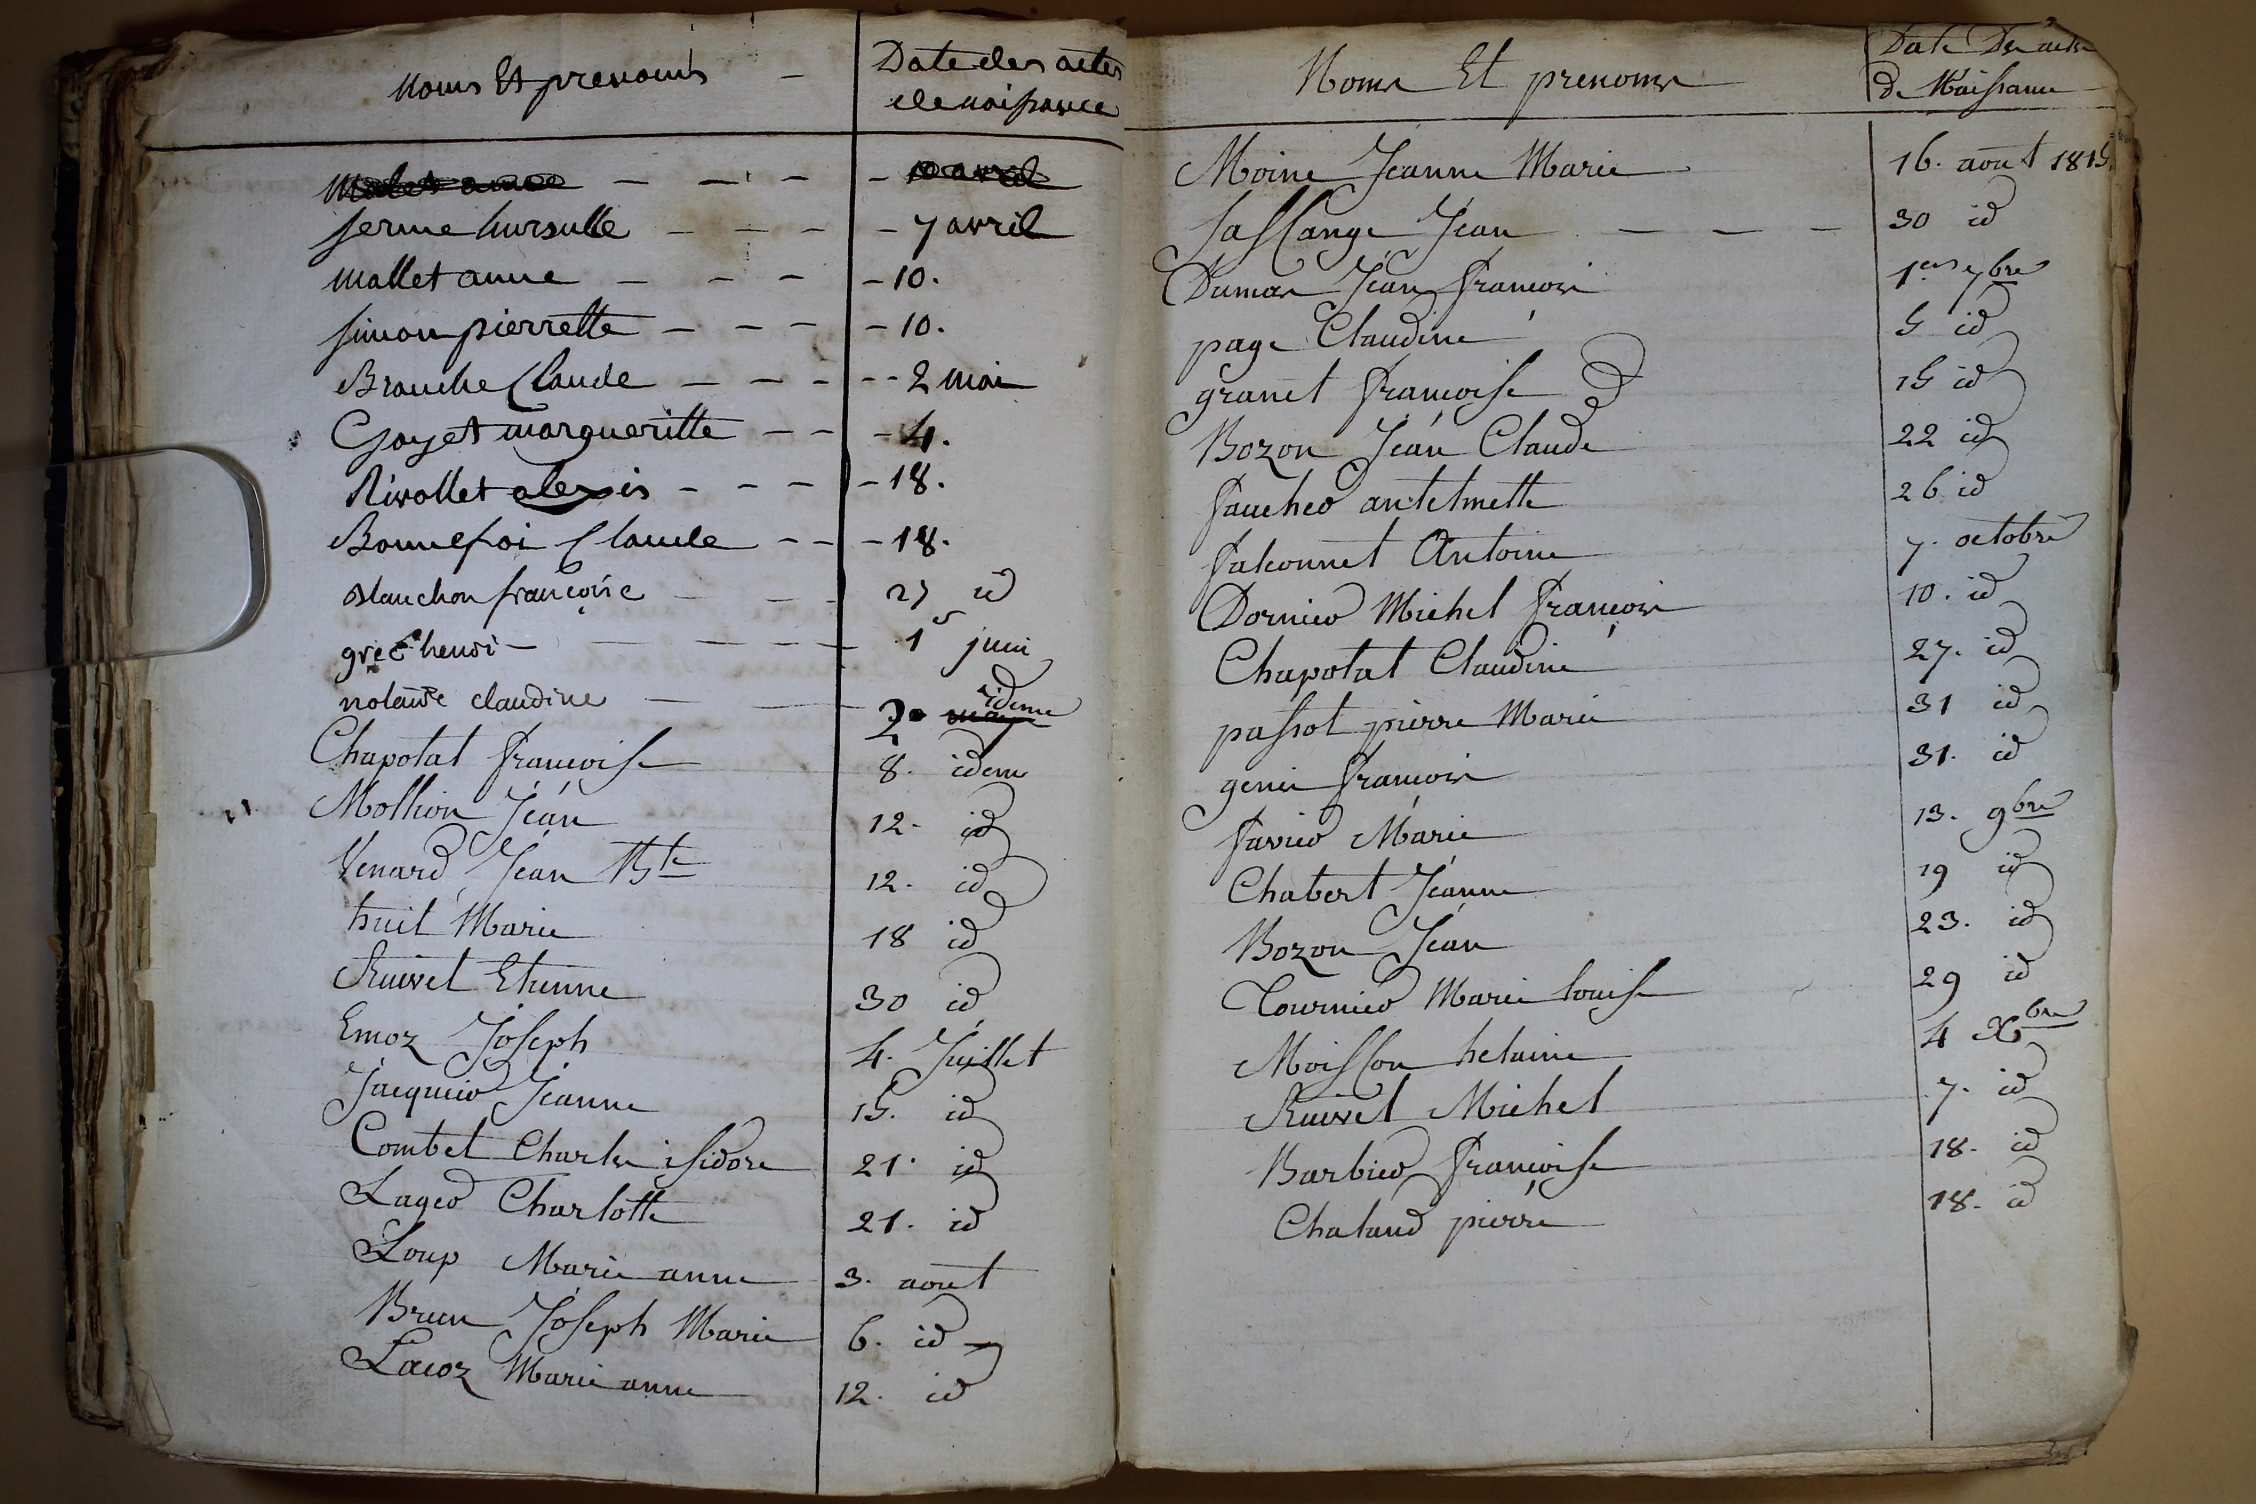 Noms Et prenoms - Date des actes
de naissance
Malet anne - - - - 10 avril
ferme hursulle - - - - 7 avril
Mallet anne - - - - 10.
Simon pierrette - - - - 10.
Brouche Claude - - - - - 2 mai
Goyet margueritte - - - 4.
Rivollet alexis - - - - 18.
Bonnefoi Claude - - - 18.
Blanchon françoise - - - 27 id
grec henri - - - - 1er juin
Claudine - - 2 idem
Chapotat françoise 8. idem
Mollion Jean 12. id
Venard Jean Bte 12. id
huit Marie 18 id
Ruivet Etienne 30 id
Emoz Joseph 4. Juillet
Jacquier Jeanne 15. id
Combet Charles isidore 21. id
Lager Charlotte 21. id
Loup Marie anne 3. aout
Brun Joseph Marie 6. id
Lacoz Marie anne 12. id
Noms Et prenoms Date Des actes
de Naissance
Moine Jeanne Marie 16. aout 1815
Lassange Jean - - - 30 id
Dumas Jean françois 1er 7bre
page Claudine 5 id
granet françoise 15 id
Bozon Jean Claude 22 id
faucher antelmette 26 id
falconnet Antoine 7. octobre
Dornier Michel françois 10. id
Chapotat Claudine 27. id
passot pierre Marie 31 id
genin françois 31. id
favier Marie 13. 9bre
Chabert Jeanne 19 id
Bozon Jean 23. id
Tournier Marie louise 29 id
Moisson helaine 4 Xbre
Ruivet Michel 7. id
Barbier françoise 18. id
Chaland pierre 18. id